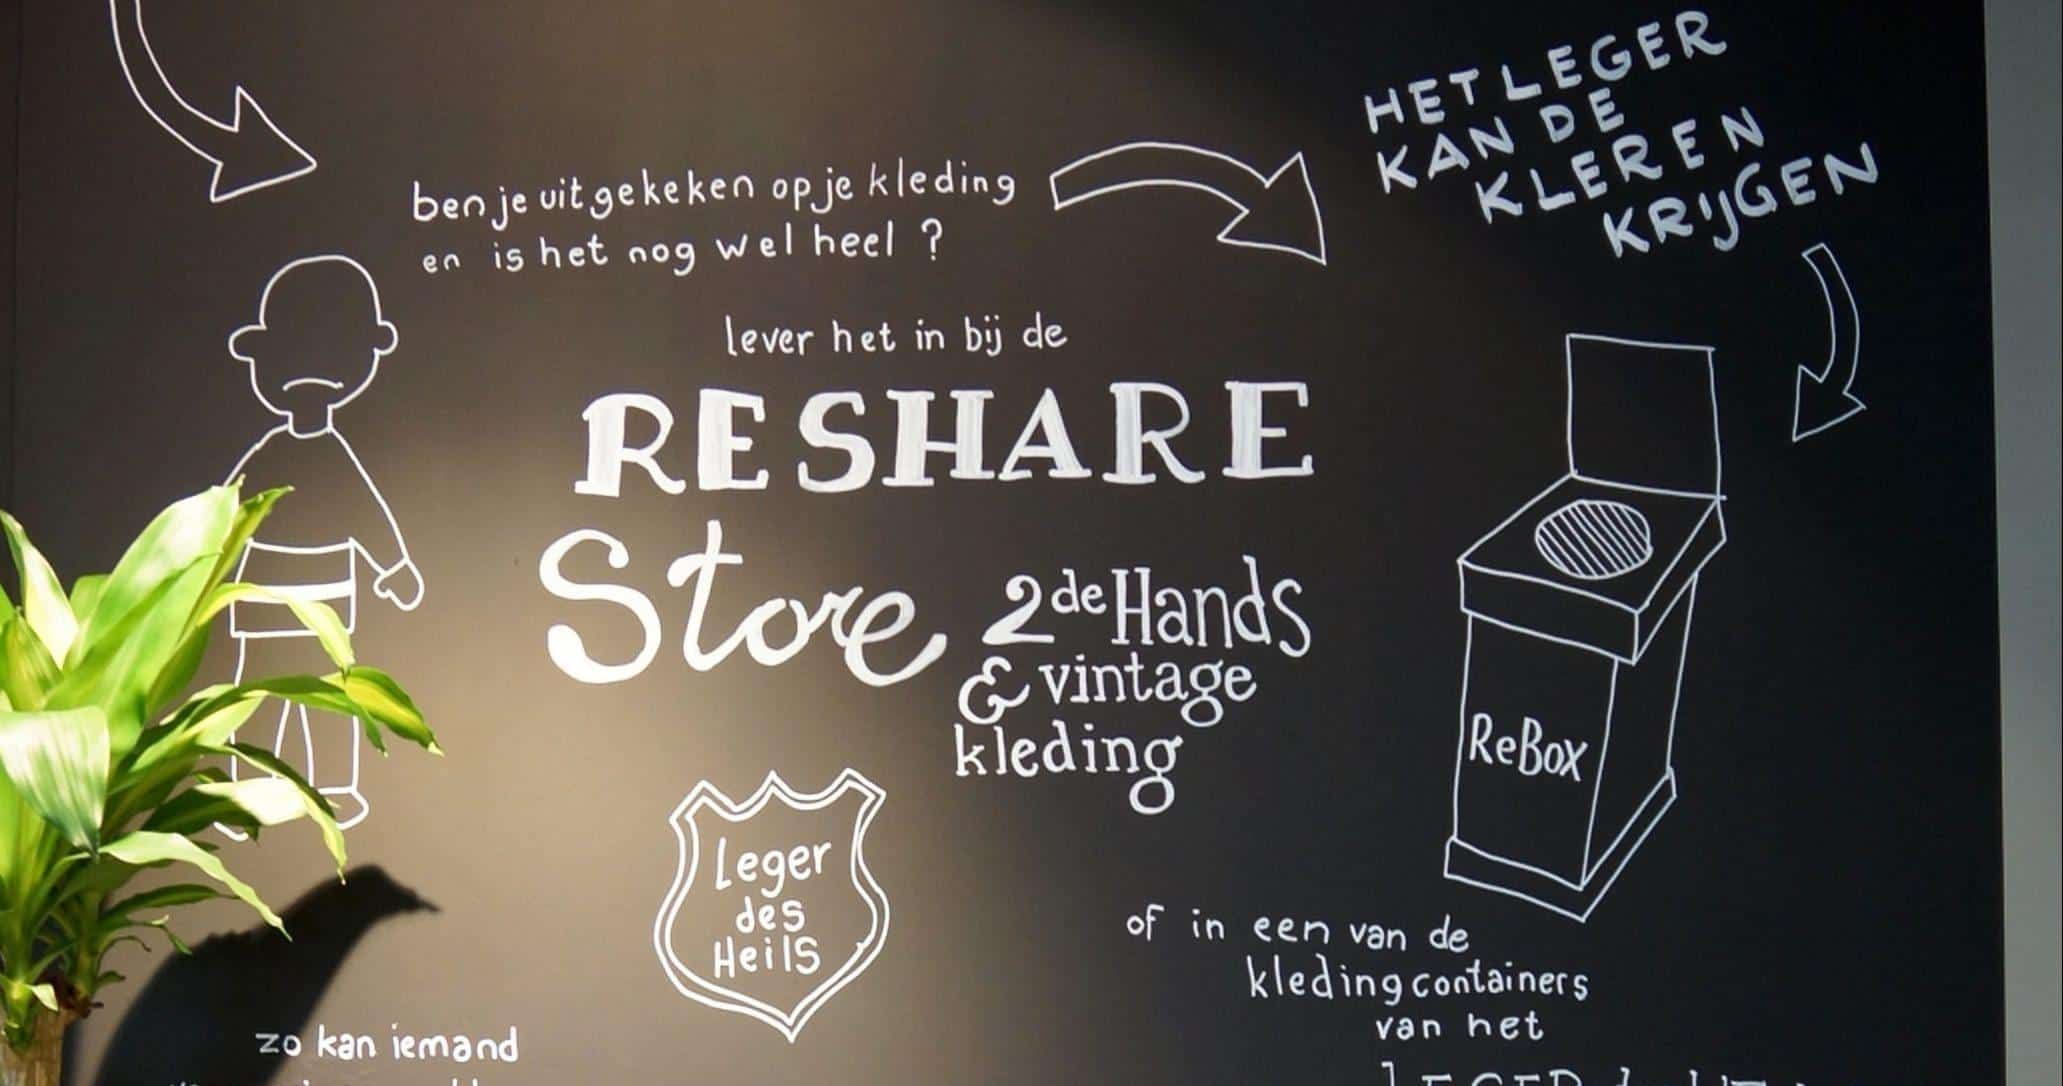 ben je uitgekeken op je kleding
en is het nog wel heel ?
HET LEGER
KAN DE
KLEREN
KRIJGEN
lever het in bij de
RESHARE
Store
2de Hands
& vintage
kleding
ReBox
Leger
des
Heils
of in een van de
kledingcontainers
van het
LEGER
zo kan iemand